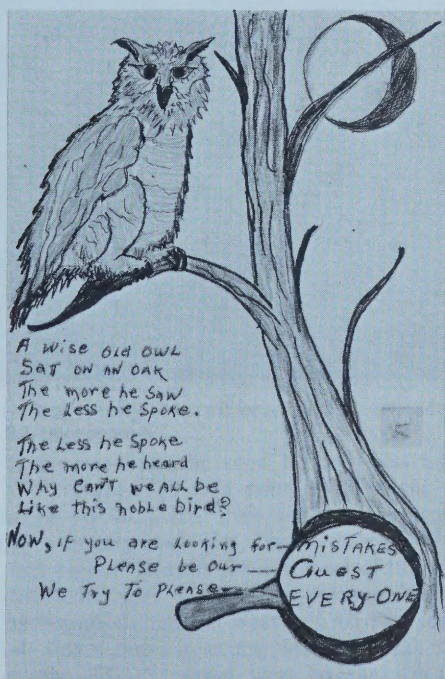 A wise old owl
Sat on an oak
The more he saw
The less he spoke.
The less he spoke
The more he heard
Why can't we all be
Like this noble bird?
Now, if you are looking for—MISTAKES
Please be our—Guest
We Try To Please—EVERY-ONE